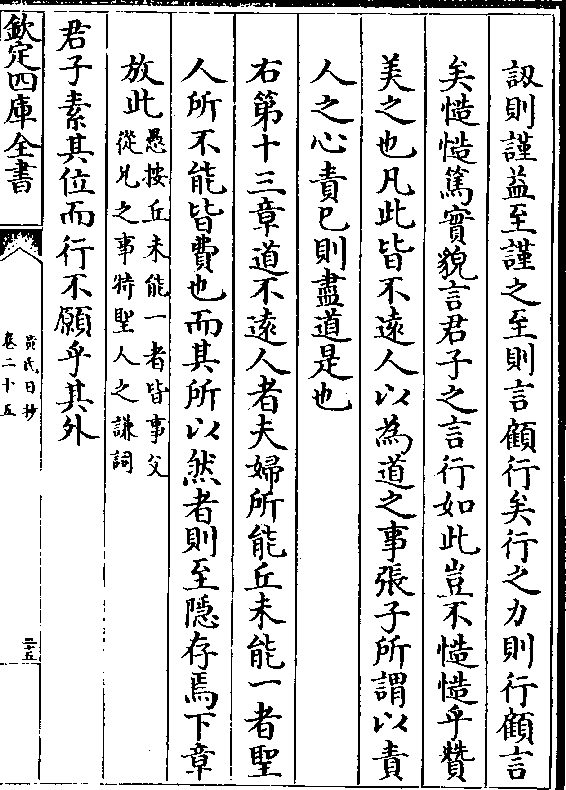 訒則謹益至謹之至則言顧行矣行之力則行顧言
矣慥慥篤實貌言君子之言行如此豈不慥慥乎贊
美之也凡此皆不遠人以為道之事張子所謂以責
人之心責已則盡道是也
右第十三章道不遠人者夫婦所能丘未能一者聖
人所不能皆費也而其所以然者則至隱存焉下章
放此愚按丘未能一者皆事父
從兄之事特聖人之謙詞
君子素其位而行不願乎其外
欽定四庫全書
黃氏日抄
卷二十五
二十五